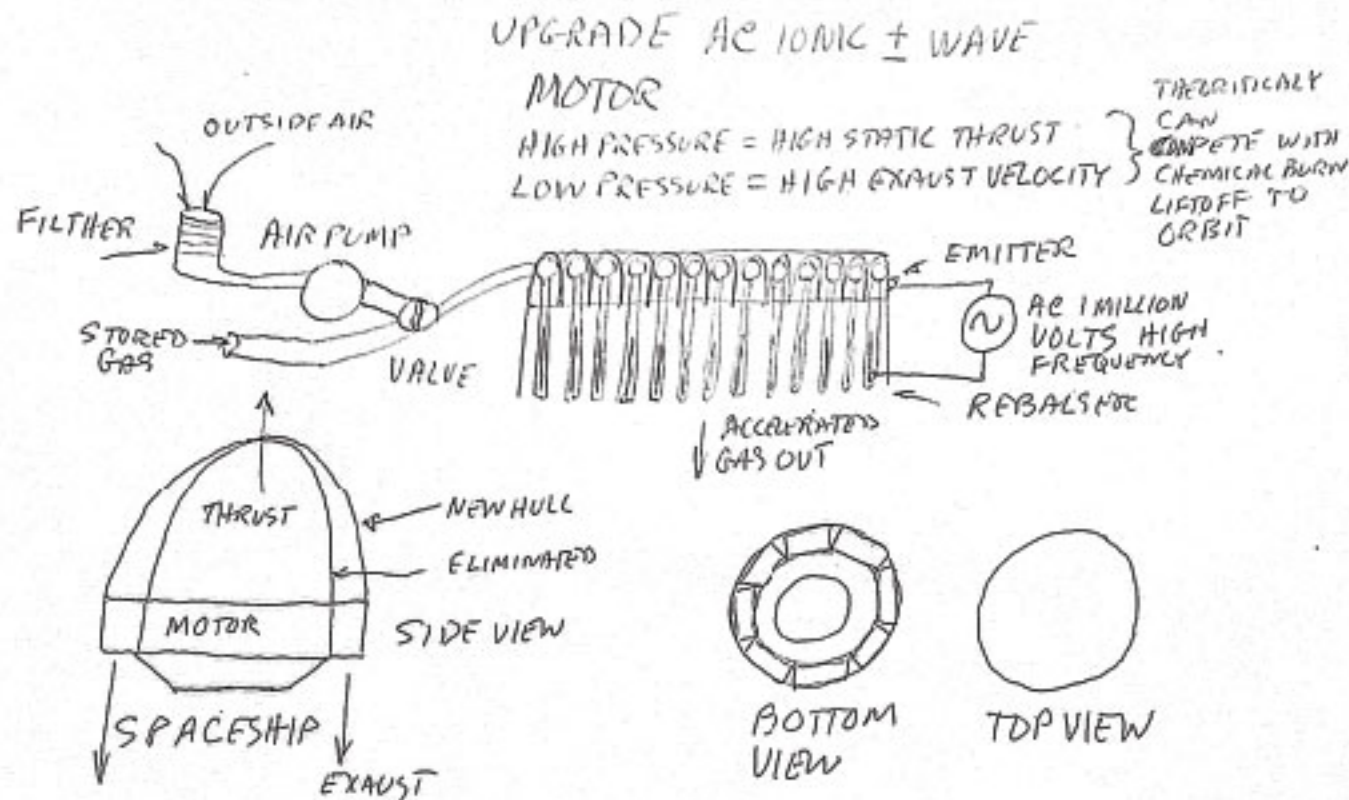 UPGRADE AC IONIC ± WAVE
MOTOR
HIGH PRESSURE = HIGH STATIC THRUST
LOW PRESSURE = HIGH EXAUST VELOCITY
THEORITICALY
CAN
COMPETE WITH
CHEMICAL BURN
LIFTOFF TO
ORBIT
OUTSIDE AIR
FILTHER
AIR PUMP
STORED
GAS
VALVE
EMITTER
AC 1 MILLION
VOLTS HIGH
FREQUENCY.
ACCELERATED
GAS OUT
THRUST
NEW HULL
ELIMINATED
MOTOR
SIDE VIEW
SPACESHIP
EXAUST
BOTTOM
VIEW
TOP VIEW